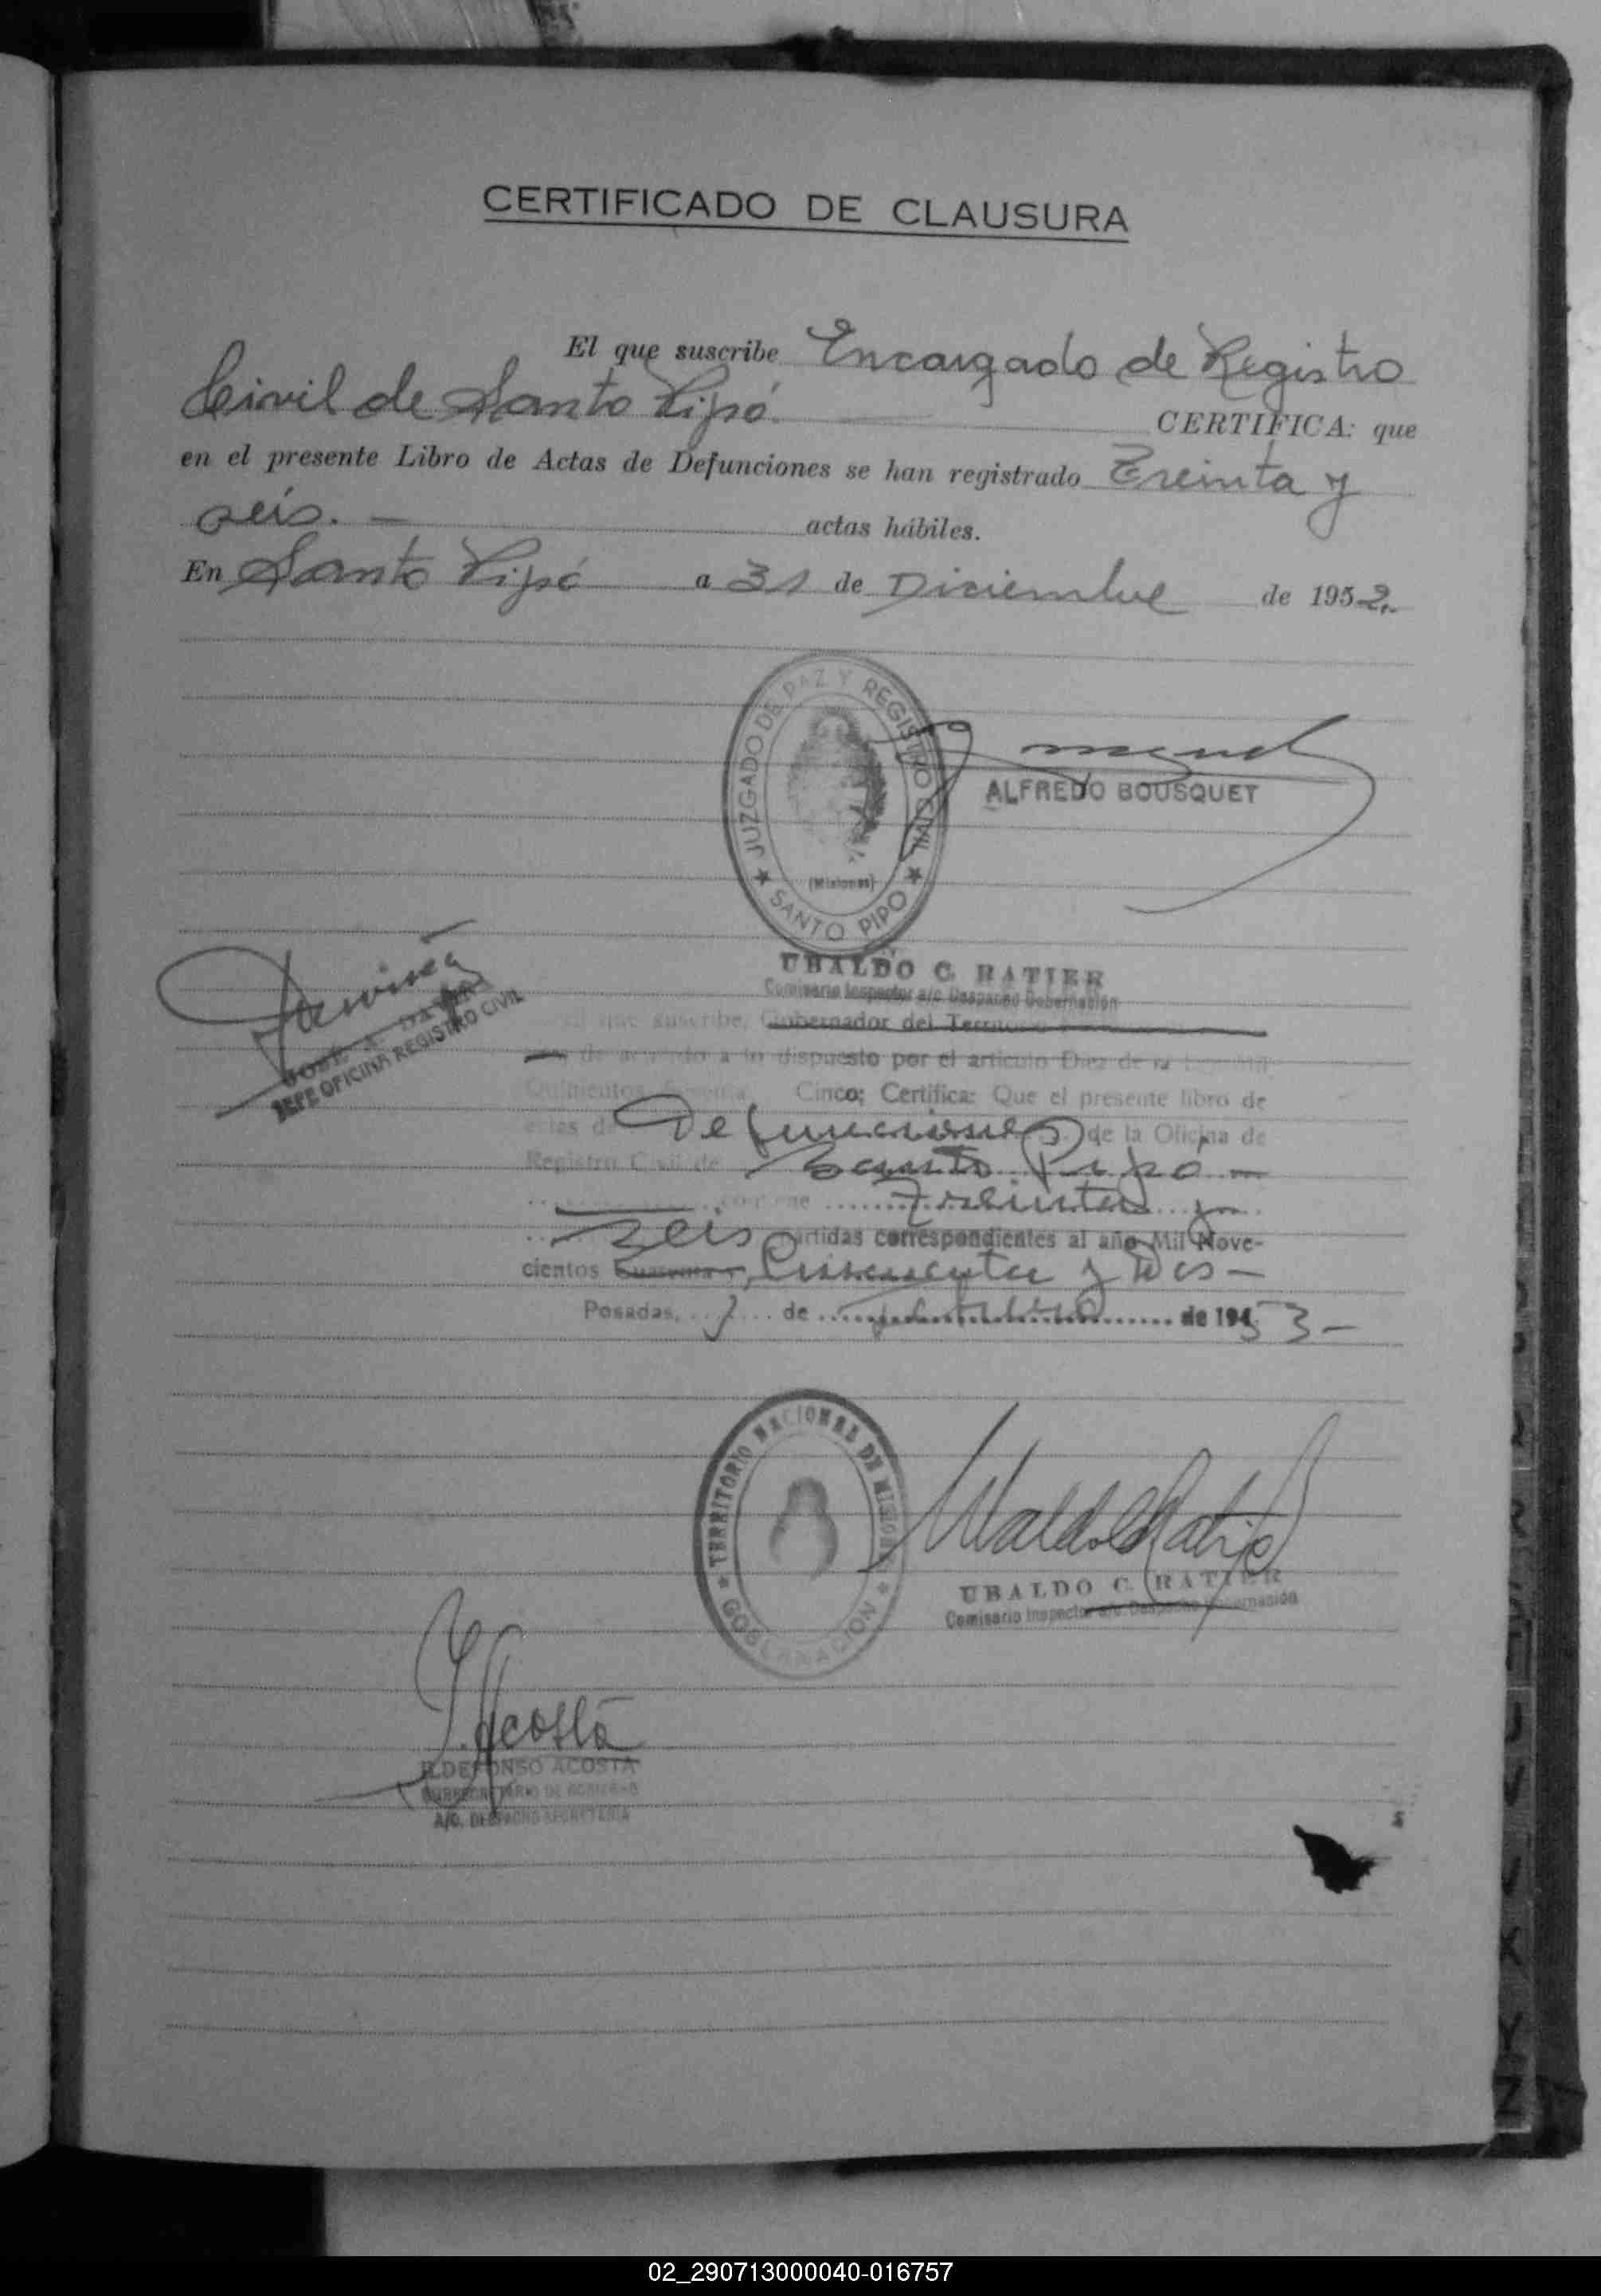 CERTIFICADO DE CLAUSURA
El que suscribe Encargado de Registro
Civil de Santo Pipó. CERTIFICA: que
en el presente Libro de Actas de Defunciones se han registrado Treinta y
seis. — actas hábiles.
En Santo Pipó a 31 de Diciembre de 1952.
JUZGADO DE PAZ Y REGISTRO CIVIL
(Misiones)
SANTO PIPO
ALFREDO BOUSQUET
UBALDO C. RATIER
Comisario Inspector a/c Despacho Gobernación
JOSE A.
JEFE OFICINA REGISTRO CIVIL
que suscribe, Gobernador del Territorio
de acuerdo a lo dispuesto por el artículo Diez de la Ley Mil
Quinientos Sesenta Cinco; Certifica: Que el presente libro de
actas de Defunciones de la Oficina de
Registro Civil de Santo Pipó —
contiene Treinta y
Seis partidas correspondientes al año Mil Nove-
cientos Cuarenta y Cincuenta y Dos —
Posadas, de de 19453 —
TERRITORIO NACIONAL DE MISIONES
GOBERNACION
Ubaldo C Ratier
UBALDO C. RATIER
Comisario Inspector a/c. Despacho Gobernación
I. Acosta
ILDEFONSO ACOSTA
SUBSECRETARIO DE GOBIERNO
A/C. DESPACHO SECRETARIA
02_290713000040-016757